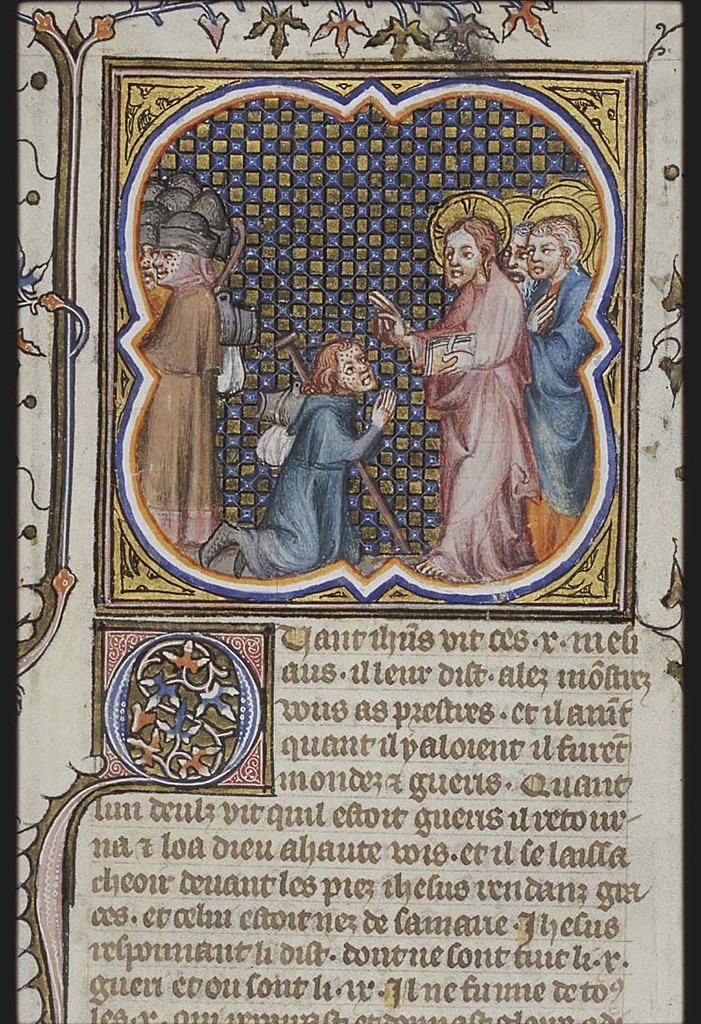 Quant ihũs vit ces .x. mesi
aus . il leur dist . alez mõstrez
vous as prestres . et il auĩt
quant il y aloient il furẽt
mondez ⁊ gueris . Quant
lun deulz vit quil estoit gueris il retour-
na ⁊ loa dieu a haute vois . et il se laissa
cheoir deuant les piez ihesus rendanz gra
ces . et celui estoit nez de samarie . Ihesus
responnant li dist . dont ne sont tuit li .x.
gueri et ou sont li .ix. Il ne fu nne de to⁹
les .x. qui